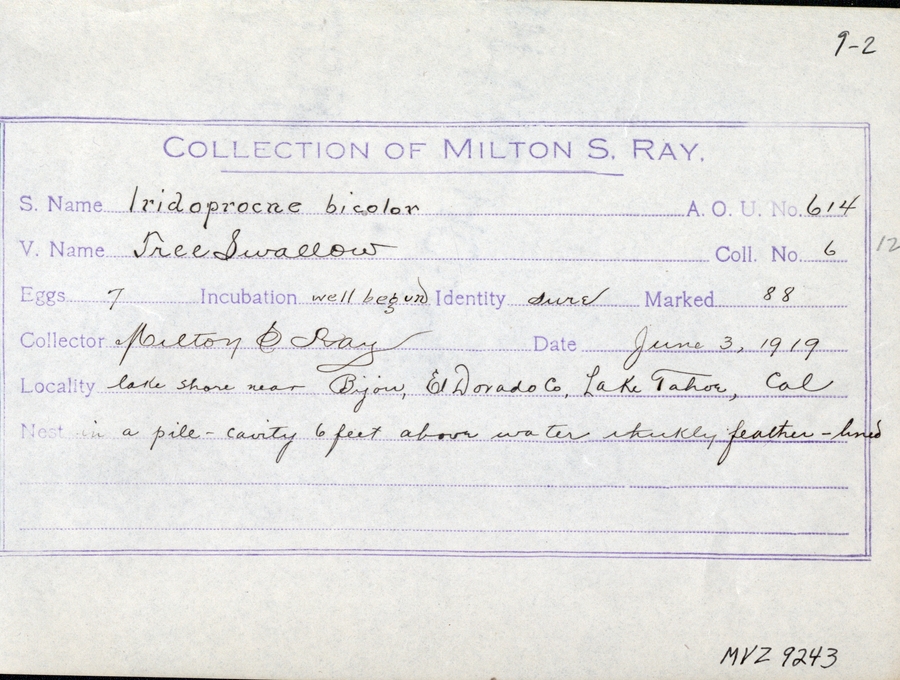 9-2
COLLECTION OF MILTON S. RAY.
S. Name Iridoprocne bicolor A. O. U. No. 614
V. Name Tree Swallow Coll. No. 6 12
Eggs 7 Incubation well begun Identity sure Marked 88
Collector Milton S Ray Date June 3, 1919
Locality lake shore near Bijou, El Dorado Co, Lake Tahoe, Cal
Nest in a pile-cavity 6 feet above water thickly feather-lined
MVZ 9243